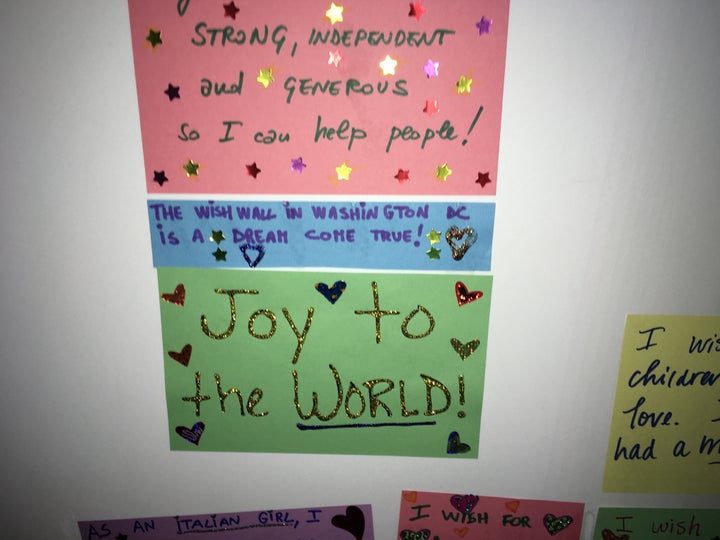 STRONG, INDEPENDENT
and GENEROUS
so I can help people!
THE WISH WALL IN WASHINGTON DC
is A DREAM COME TRUE!
Joy to
the WORLD!
I
children
love.
had a
AS AN iTALiAN GiRL, I
I WISH FOR
I wish